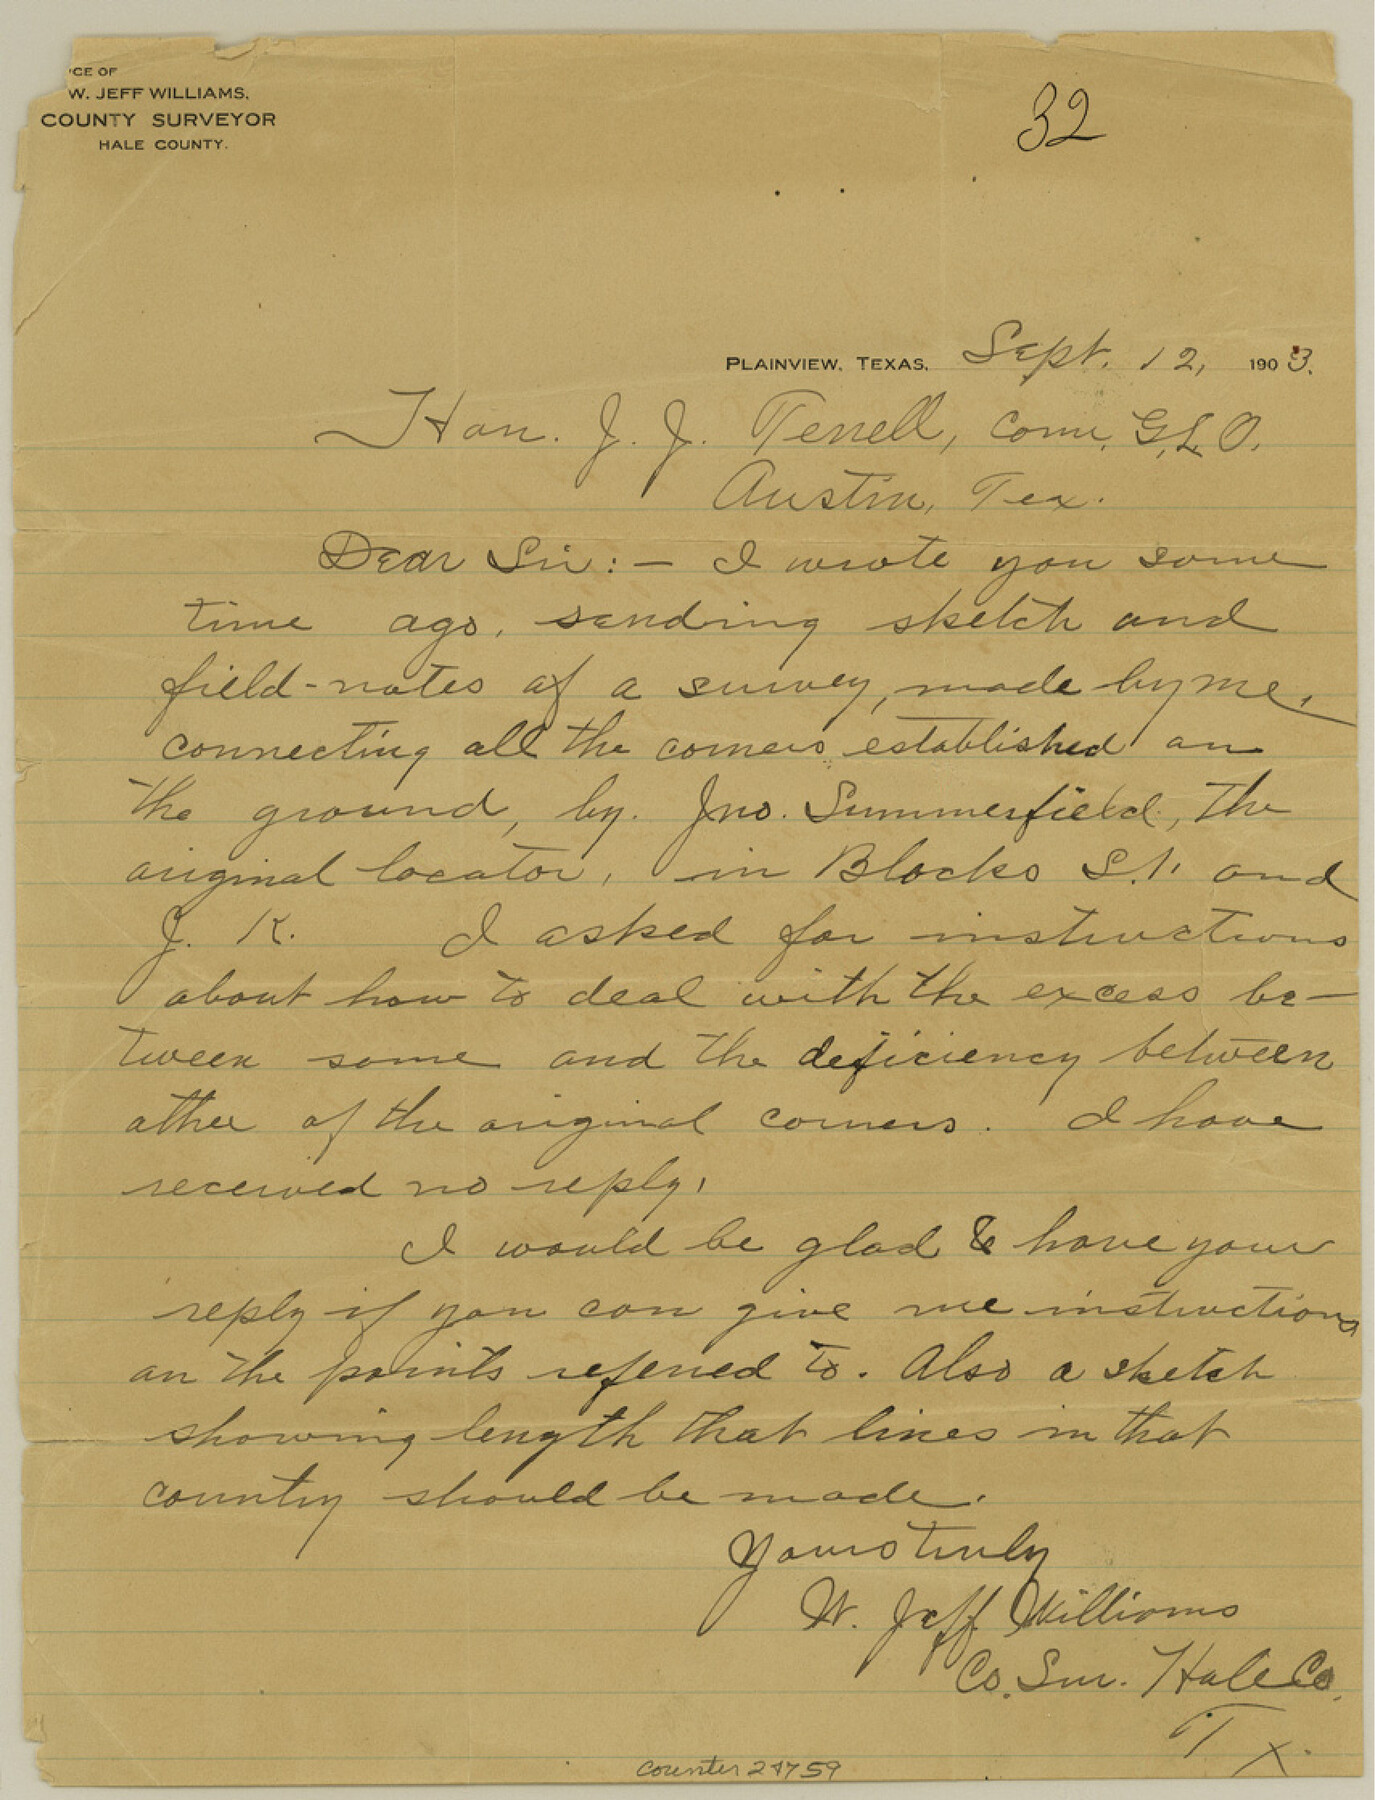 ICE OF
W. JEFF WILLIAMS,
COUNTY SURVEYOR
HALE COUNTY.
32
PLAINVIEW, TEXAS, Sept. 12, 1903.
Hon. J. J. Terrell, Com. G.L.O.
Austin, Tex.
Dear Sir:— I wrote you some
time ago, sending sketch and
field-notes of a survey, made by me,
connecting all the corners established on
the ground, by. Jno. Summerfield, the
original locator, in Blocks S.1. and
J. K. I asked for instructions
about how to deal with the excess be-
tween some and the deficiency between
other of the original corners. I have
received no reply.
I would be glad to have your
reply if you can give me instructions
on the points referred to. Also a sketch
showing length that lines in that
country should be made.
Yours truly
W. Jeff Williams
Co. Sur. Hale Co.
Tx.
counter 24759